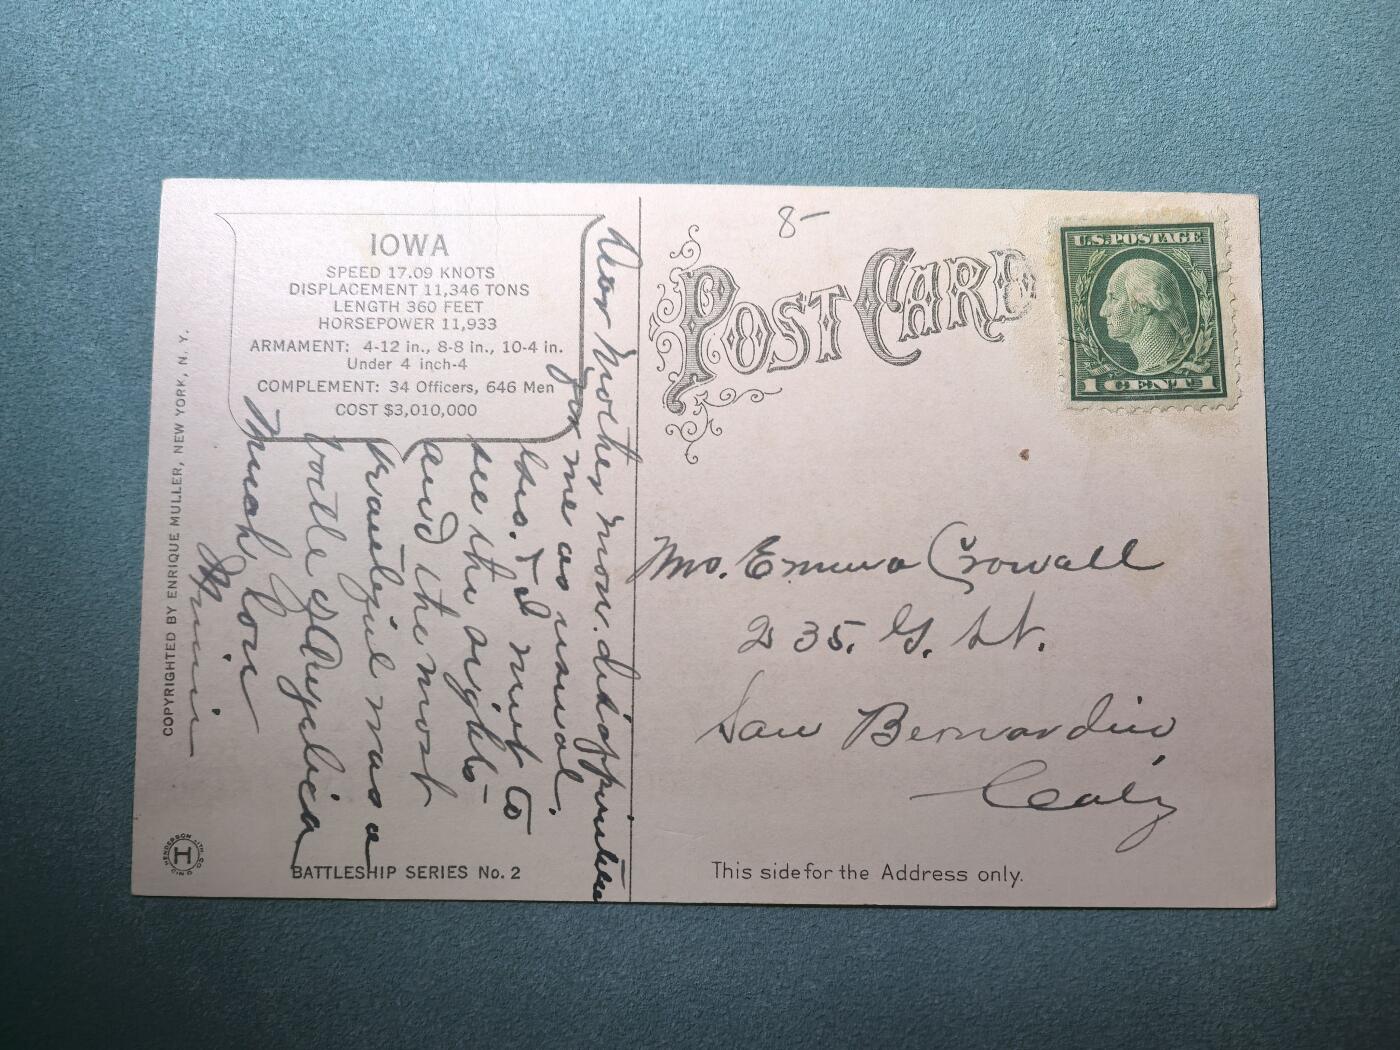 IOWA
SPEED 17.09 KNOTS
DISPLACEMENT 11,346 TONS
LENGTH 360 FEET
HORSEPOWER 11,933
ARMAMENT: 4-12 in., 8-8 in., 10-4 in.
Under 4 inch-4
COMPLEMENT: 34 Officers, 646 Men
COST $3,010,000
Dear Mother mon. disappinted
for me as usual.
Geo. & I went to
see the sights
and the most
was a
bottle of Angelica
Much love
Minnie
COPYRIGHTED BY ENRIQUE MULLER, NEW YORK, N. Y.
HENDERSON LITH. CO. CIN'TI O.
H
BATTLESHIP SERIES No. 2
8-
POST CARD
U.S. POSTAGE
1 CENT 1
Mrs. Emma Crowall
235. G. St.
San Bernardino
Calif
This side for the Address only.